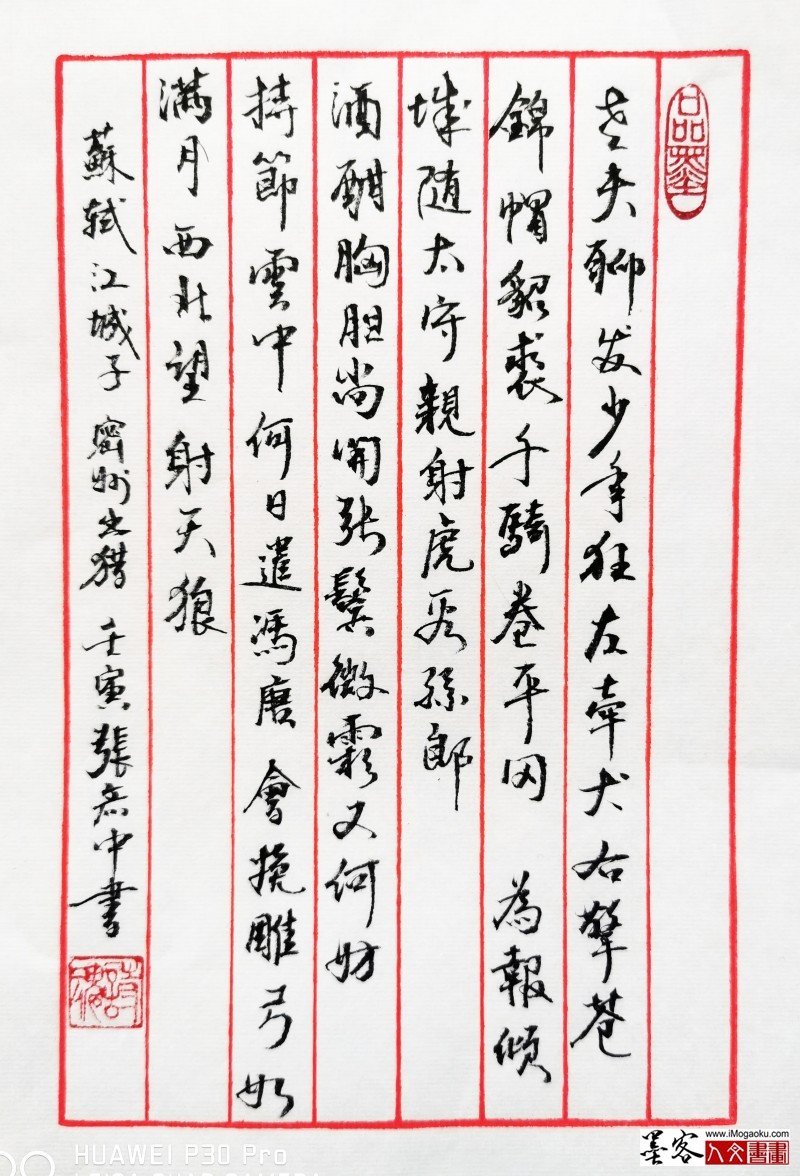 品墨
老夫聊发少年狂左牵犬右擎苍
錦帽貂裘千騎卷平冈 為報傾
城随太守親射虎看孫郎
酒酣胸胆尚開張鬓微霜又何妨
持節雲中何日遣馮唐 會挽雕弓如
满月西北望射天狼
蘇軾江城子 密州出猎 壬寅張志中書
HUAWEI P30 Pro
www.iMogaoku.com
墨客 人文書畫